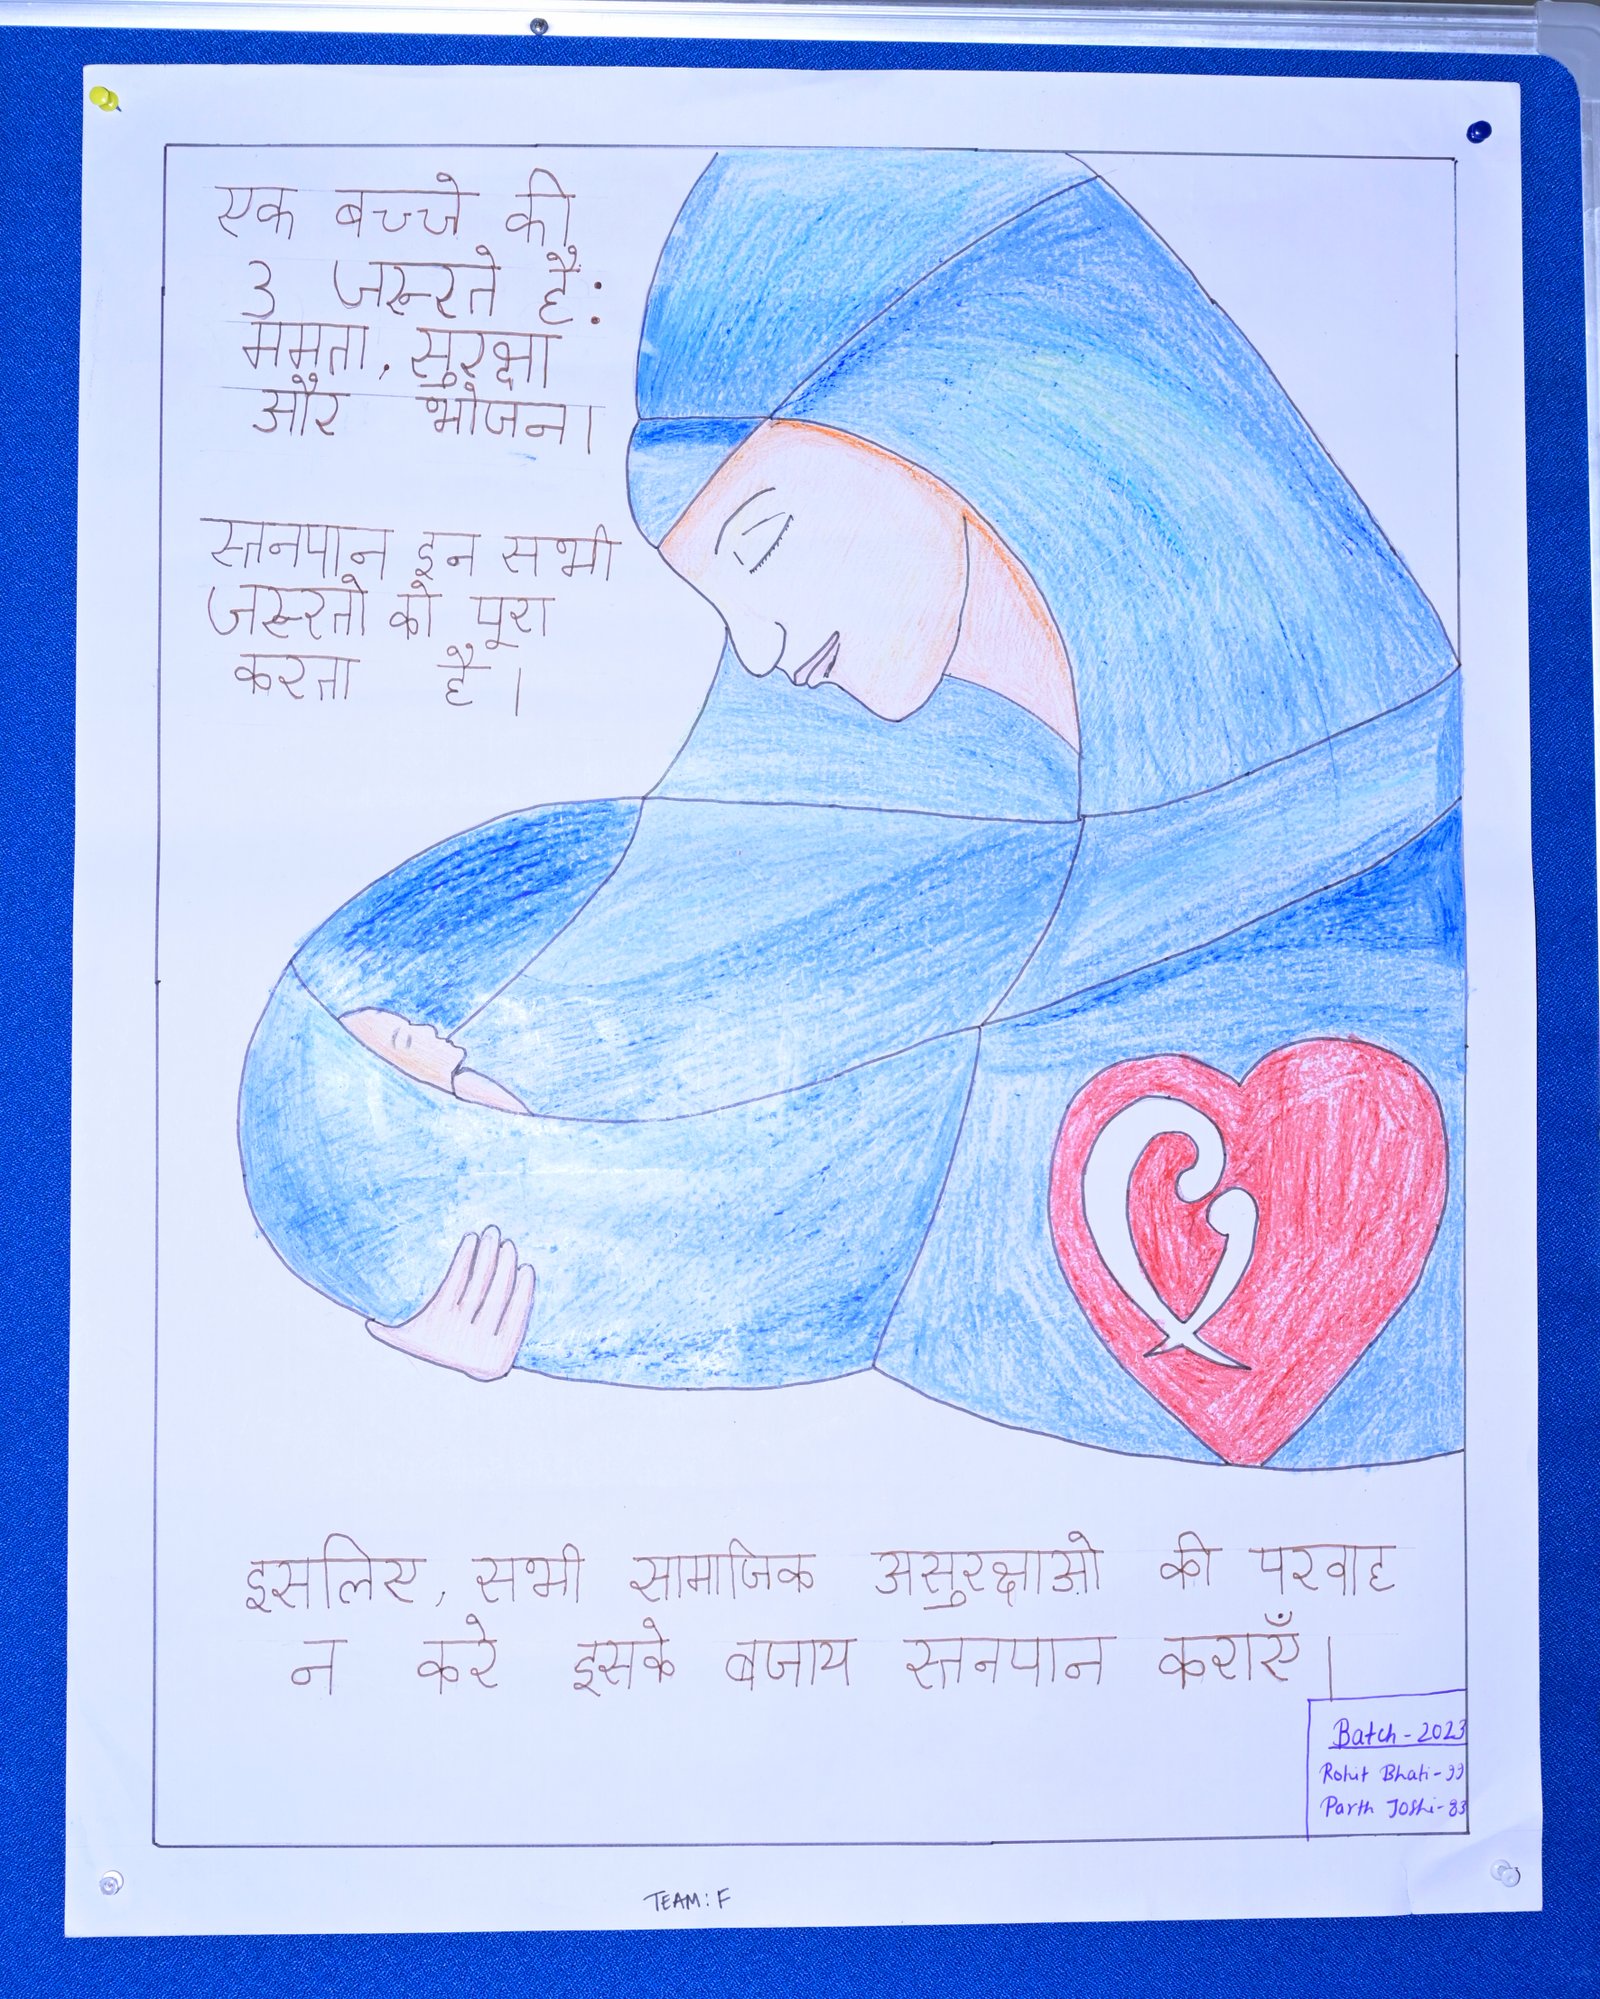 एक बच्चे की
3 जरूरते है:
ममता, सुरक्षा
और भोजन।
स्तनपान इन सभी
जरूरतो को पूरा
करता है।
इसलिए, सभी सामाजिक असुरक्षाओ की परवाह
न करे इसके बजाय स्तनपान कराएँ।
Batch - 2023
Rohit Bhati - 99
Parth Joshi - 83
TEAM: F